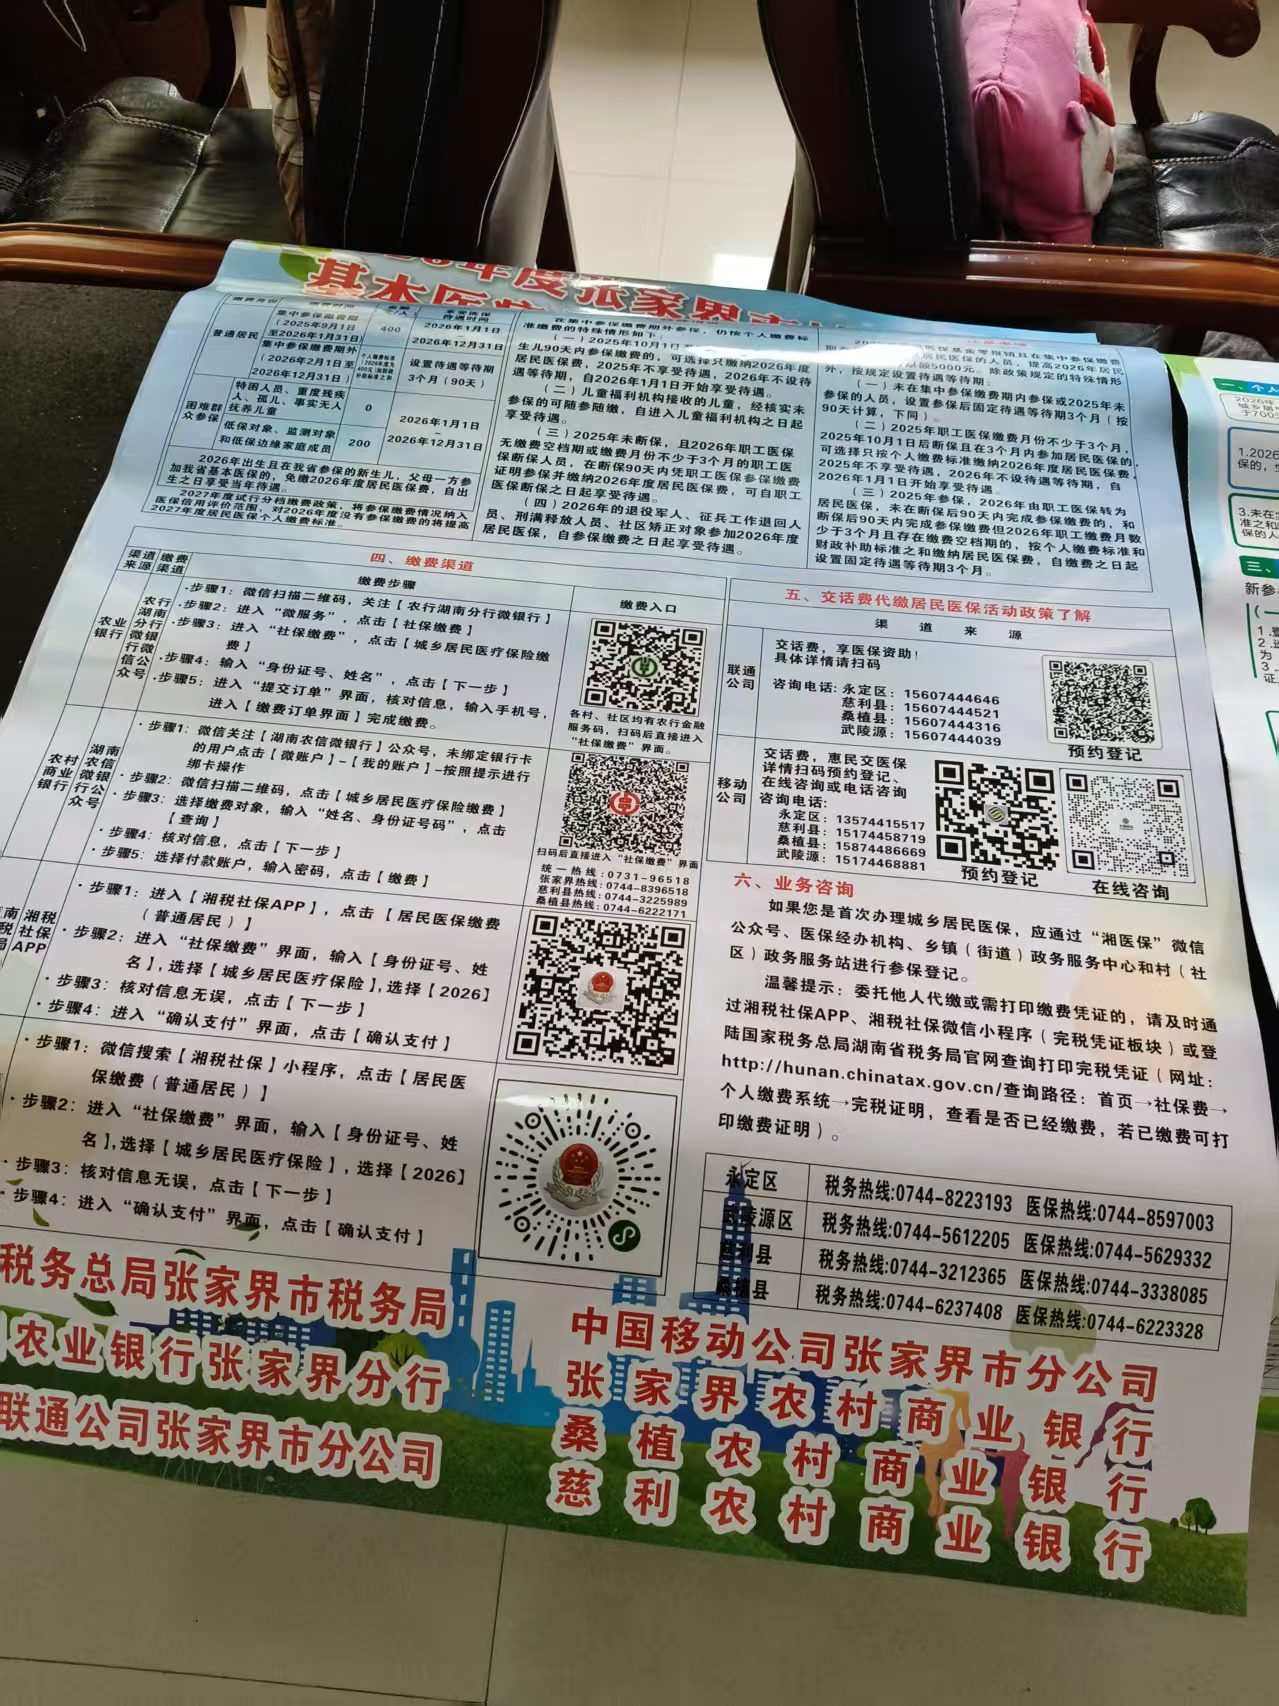 年度张家界市
基本医
普通居民
集中参保缴费期
(2025年9月1日
至2026年1月31日)
400
2026年1月1日
2026年12月31日
集中参保缴费期外
(2026年2月1日至
2026年12月31日)
设置待遇等待期
3个月(90天)
困难群
众参保
特困人员、重度残疾
人、孤儿、事实无人
抚养儿童
0
低保对象、监测对象
和低保边缘家庭成员
200
2026年1月1日
–
2026年12月31日
2026年出生且在我省参保的新生儿,父母一方参
加我省基本医保的,免缴2026年度居民医保费,自出
生之日享受当年待遇。
2027年度试行分档缴费政策,将参保缴费情况纳入
医保信用评价范围,对2026年度没有参保缴费的将提高
2027年度居民医保个人缴费标准。
在集中参保缴费期外参保,仍按个人缴费标
准缴费的特殊情形如下:
(一)2025年10月1日至
生儿90天内参保缴费的,可选择只缴纳2026年度
居民医保费,2025年不享受待遇,2026年不设待
遇等待期,自2026年1月1日开始享受待遇。
(二)儿童福利机构接收的儿童,经核实未
参保的可随参随缴,自进入儿童福利机构之日起
享受待遇。
(三)2025年未断保,且2026年职工医保
无缴费空档期或缴费月份不少于3个月的职工医
保断保人员,在断保90天内凭职工医保参保缴费
证明参保并缴纳2026年度居民医保费,可自职工
医保断保之日起享受待遇。
(四)2026年的退役军人、征兵工作退回人
员、刑满释放人员、社区矫正对象参加2026年度
居民医保,自参保缴费之日起享受待遇。
外,按规定设置待遇等待期:
(一)未在集中参保缴费期内参保或2025年未
参保的人员,设置参保后固定待遇等待期3个月(按
90天计算,下同)。
(二)2025年职工医保缴费月份不少于3个月,
2025年10月1日后断保且在3个月内参加居民医保的,
可选择只按个人缴费标准缴纳2026年度居民医保费,
2025年不享受待遇,2026年不设待遇等待期,自
2026年1月1日开始享受待遇。
(三)2025年参保,2026年由职工医保转为
居民医保,未在断保后90天内完成参保缴费的,和
断保后90天内完成参保缴费但2026年职工缴费月数
少于3个月且存在缴费空档期的,按个人缴费标准和
财政补助标准之和缴纳居民医保费,自缴费之日起
设置固定待遇等待期3个月。
四、缴费渠道
渠道
来源
缴费
渠道
缴费步骤
缴费入口
农业
银行
农行
湖南
分行
微银
行微
信公
众号
·步骤1:微信扫描二维码,关注【农行湖南分行微银行】
·步骤2:进入“微服务”,点击【社保缴费】
·步骤3:进入“社保缴费”,点击【城乡居民医疗保险缴
费】
·步骤4:输入“身份证号、姓名”,点击【下一步】
·步骤5:进入“提交订单”界面,核对信息,输入手机号,
进入【缴费订单界面】完成缴费。
各村、社区均有农行金融
服务码,扫码后直接进入
“社保缴费”界面。
农村
商业
银行
湖南
农信
微银
行公
众号
·步骤1:微信关注【湖南农信微银行】公众号,未绑定银行卡
的用户点击【微账户】-【我的账户】-按照提示进行
绑卡操作
·步骤2:微信扫描二维码,点击【城乡居民医疗保险缴费】
·步骤3:选择缴费对象,输入“姓名、身份证号码”,点击
【查询】
·步骤4:核对信息,点击【下一步】
·步骤5:选择付款账户,输入密码,点击【缴费】
扫码后直接进入“社保缴费”界面
统一热线:0731-96518
张家界热线:0744-8396518
慈利县热线:0744-3225989
桑植县热线:0744-6222171
湘税
社保
APP
·步骤1:进入【湘税社保APP】,点击【居民医保缴费
(普通居民)】
·步骤2:进入“社保缴费”界面,输入【身份证号、姓
名】,选择【城乡居民医疗保险】,选择【2026】
·步骤3:核对信息无误,点击【下一步】
·步骤4:进入“确认支付”界面,点击【确认支付】
·步骤1:微信搜索【湘税社保】小程序,点击【居民医
保缴费(普通居民)】
·步骤2:进入“社保缴费”界面,输入【身份证号、姓
名】,选择【城乡居民医疗保险】,选择【2026】
·步骤3:核对信息无误,点击【下一步】
·步骤4:进入“确认支付”界面,点击【确认支付】
五、交话费代缴居民医保活动政策了解
渠道来源
联通
公司
交话费,享医保资助!
具体详情请扫码
咨询电话:永定区:15607444646
慈利县:15607444521
桑植县:15607444316
武陵源:15607444039
预约登记
移动
公司
交话费,惠民交医保
详情扫码预约登记、
在线咨询或电话咨询
咨询电话:
永定区:13574415517
慈利县:15174458719
桑植县:15874486669
武陵源:15174468881
预约登记
在线咨询
六、业务咨询
如果您是首次办理城乡居民医保,应通过“湘医保”微信
公众号、医保经办机构、乡镇(街道)政务服务中心和村(社
区)政务服务站进行参保登记。
温馨提示:委托他人代缴或需打印缴费凭证的,请及时通
过湘税社保APP、湘税社保微信小程序(完税凭证板块)或登
陆国家税务总局湖南省税务局官网查询打印完税凭证(网址:
http://hunan.chinatax.gov.cn/查询路径:首页→社保费→
个人缴费系统→完税证明,查看是否已经缴费,若已缴费可打
印缴费证明)。
永定区 税务热线:0744-8223193 医保热线:0744-8597003
武陵源区 税务热线:0744-5612205 医保热线:0744-5629332
慈利县 税务热线:0744-3212365 医保热线:0744-3338085
桑植县 税务热线:0744-6237408 医保热线:0744-6223328
税务总局张家界市税务局
农业银行张家界分行
联通公司张家界市分公司
中国移动公司张家界市分公司
张家界农村商业银行
桑植农村商业银行
慈利农村商业银行
一、个人
1.2026
保的,
3.未在
准之和
保的人
三、
新参
(一